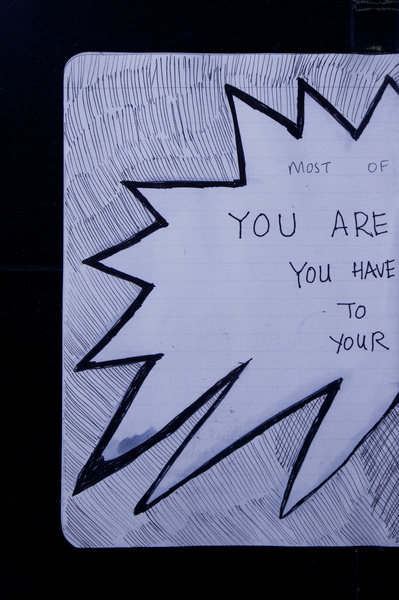 MOST OF
YOU ARE
YOU HAVE
TO
YOUR